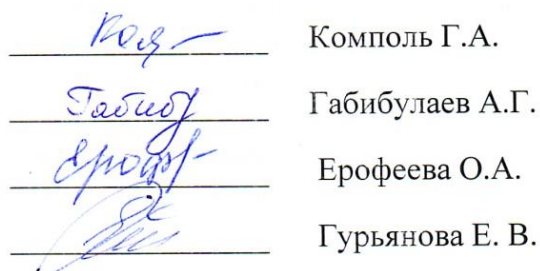 Комполь Г.А.
Габибу Габибулаев А.Г.
Ерофеева О.А.
Гурьянова Е. В.